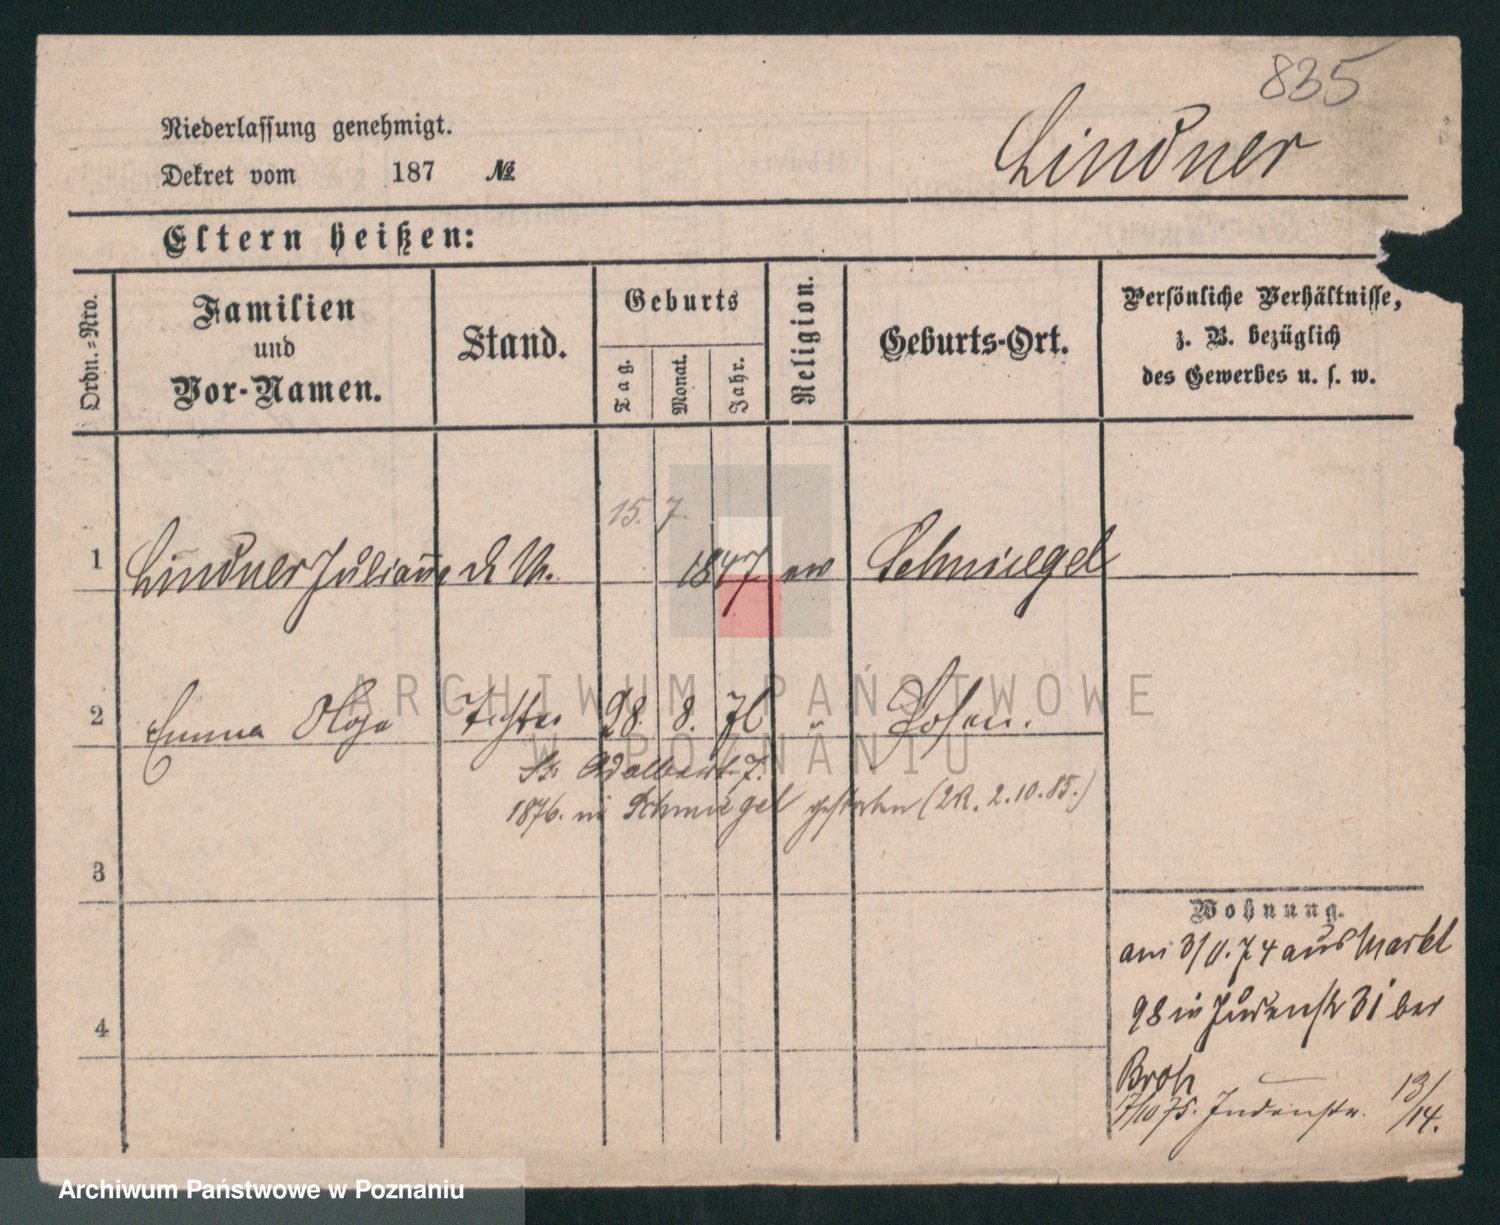 835
Lindner
Niederlassung genehmigt.
Dekret vom 187 №
Eltern heißen:
Ordn.-Nro.
Familien
und
Vor-Namen.
Stand.
Geburts
Tag.
Monat.
Jahr.
Religion.
Geburts-Ort.
Persönliche Verhältnisse,
z. B. bezüglich
des Gewerbes u. s. w.
15. 7.
1 Lindner Juliane 1847 ev Schmiegel
2 Emma Olga Tochter 28. 8. 76 " Posen.
Adalbert 7.
1876. in Schmiegel gestorben (2.10.85.)
3
4
Wohnung.
am 3/0.74 aus Markt
98 in Judenstr 31 bei
Broh
7/10 75. Judenstr. 13/14.
ARCHIWUM PAŃSTWOWE
W POZNANIU
Archiwum Państwowe w Poznaniu